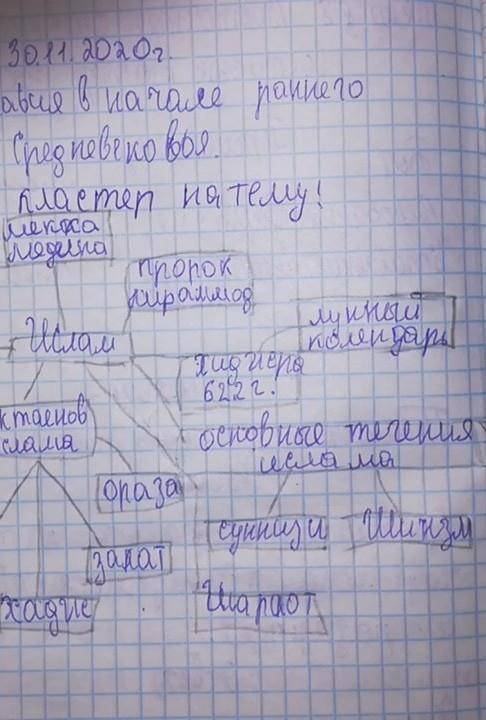 30.11.2020г.
авия в начале раннего
Средневековья.
кластер на тему!
мекка
медина
пророк
мираммод
Ислам
лунный
календарь
хиджера
622г.
ктаенов
слама
основные течения
ислама
ораза
сунизи
Шиизм
закат
хадис
Шариот